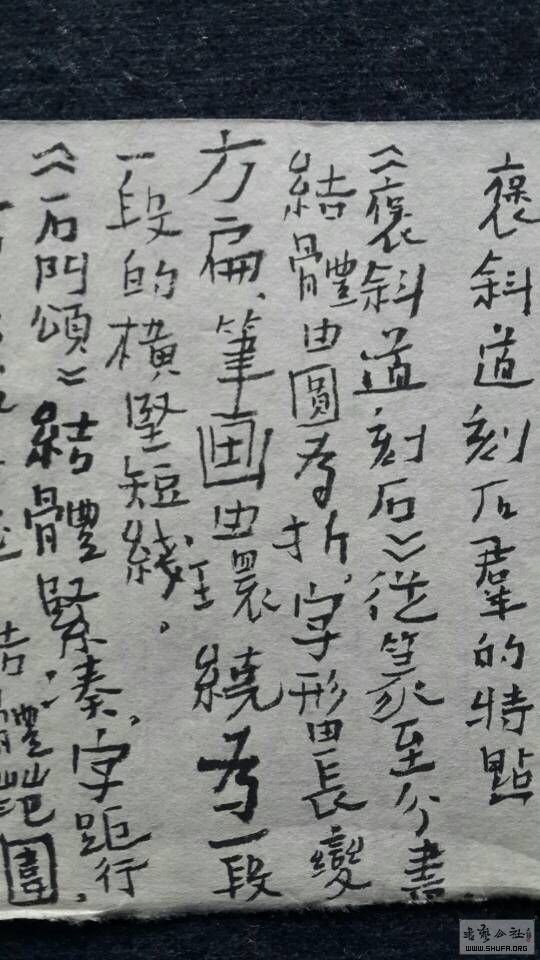 褒斜道刻石羣的特點
《褒斜道刻石》從篆至分書
結體由圓為折，字形由長變
方扁、筆画由
繞為一段
一段的横竪短綫。
《石門頌》結體緊凑，字距行
WWW.SHUFA.ORG